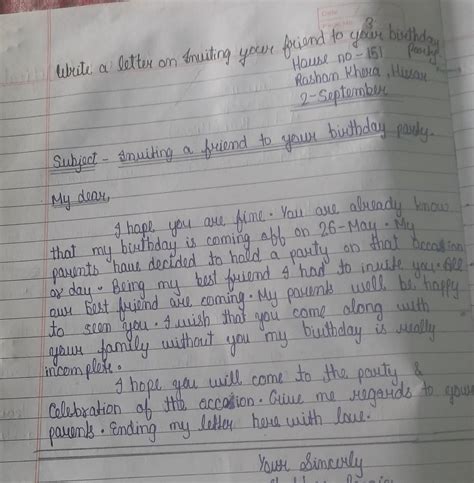 Date
Write a letter on inuiting your friend to your birthday
party
House no - 151
Rashan Khera, Hissar
2 - September
Subject - Inuiting a friend to your birthday party.
My dear,
I hope you are fime. You are already know
that my birthday is coming off on 26-May. My
parents have decided to hold a party on that occasion
or day. Being my best friend I had to invite you. All
our Best friend are coming. My parents well be happy
to seen you. I wish that you come along with
your family without you my birthday is really
incomplete.
I hope you will come to the party &
Celebration of the accasion. Give me regards to your
parents. Ending my letter here with love.
Your Sincerly